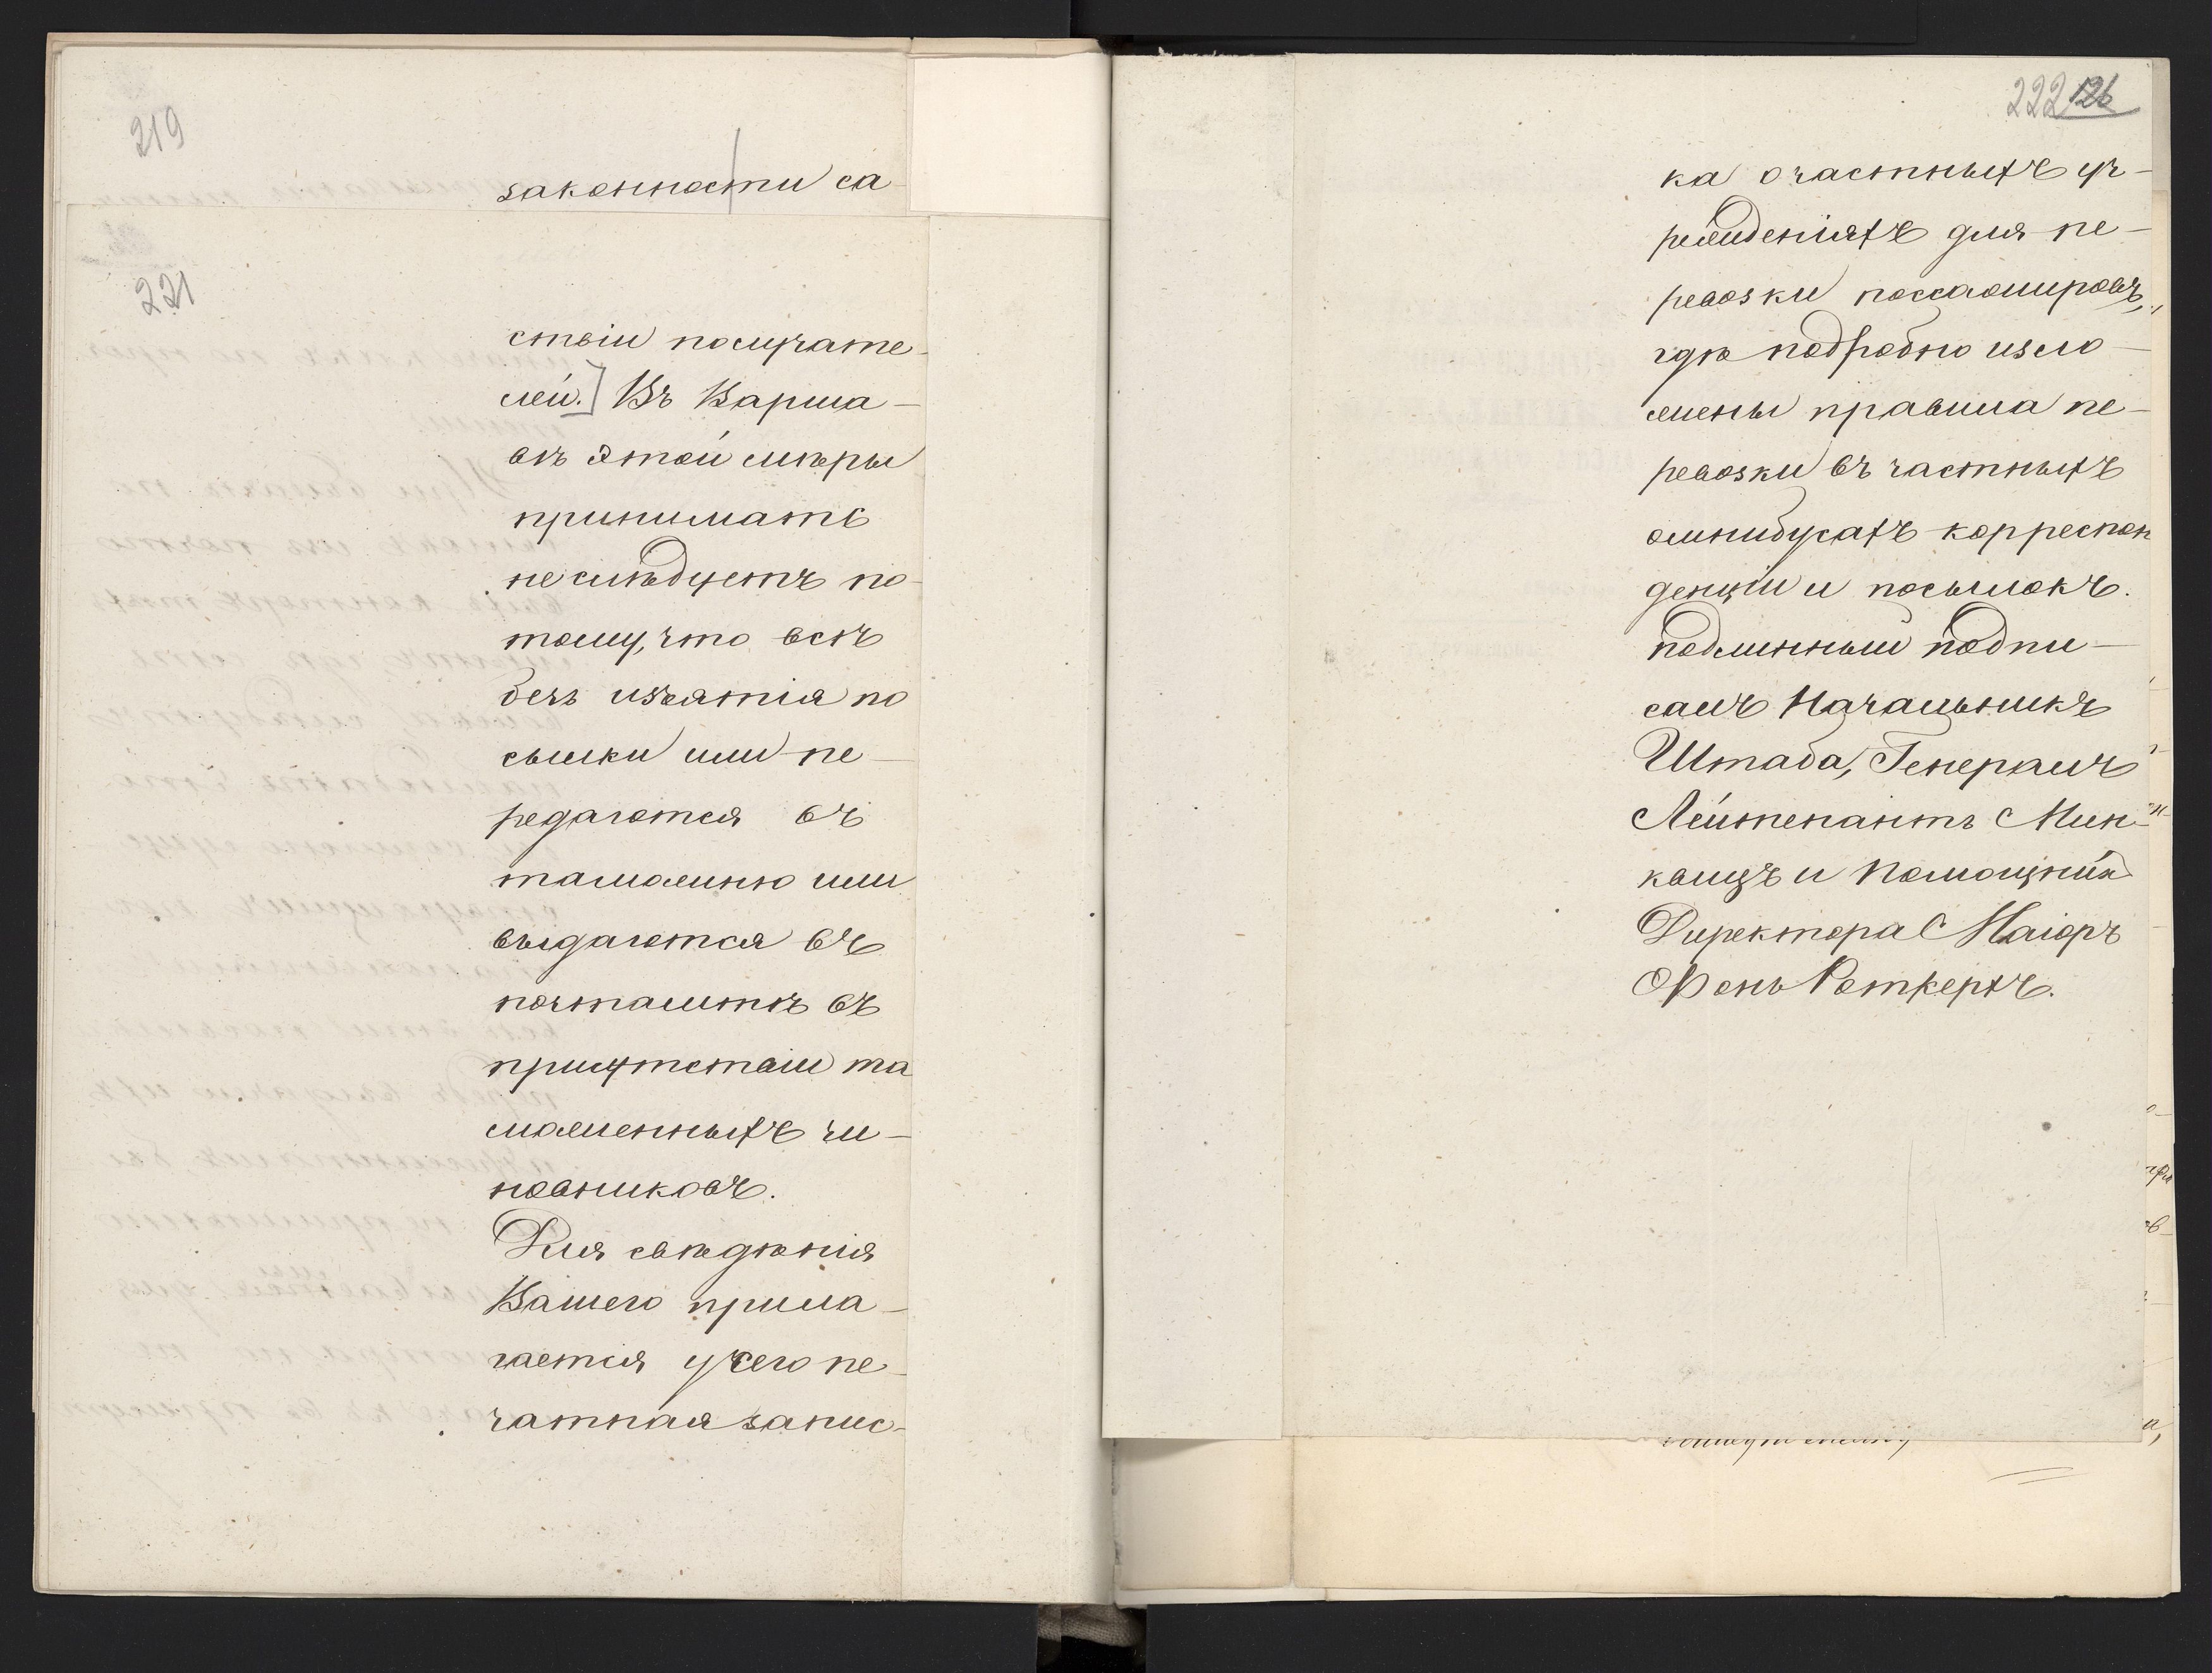 219
законности са-
221
ствіи получате-
лей.] Въ Варша-
вѣ этой мѣры
принимать
не слѣдуетъ по-
тому, что всѣ
безъ изъятія по
сылки или пе-
редаются въ
таможню или
выдаются въ
почтамтѣ въ
присутствіи та
моженныхъ чи-
новниковъ.
Для свѣдѣнія
Вашего прила-
гается у сего пе-
чатная запис-
222 126
ка о частныхъ уч-
режденіяхъ для пе-
ревозки пассажировъ,
гдѣ подробно изло-
жены правила пе-
ревозки въ частныхъ
омнибусахъ корреспон
денціи и посылокъ.
подлинный подпи-
салъ Начальникъ
Штаба, Генералъ
Лейтенантъ Мин-
квицъ и Помощникъ
Директора Маіоръ
Фонъ Роткерхъ.